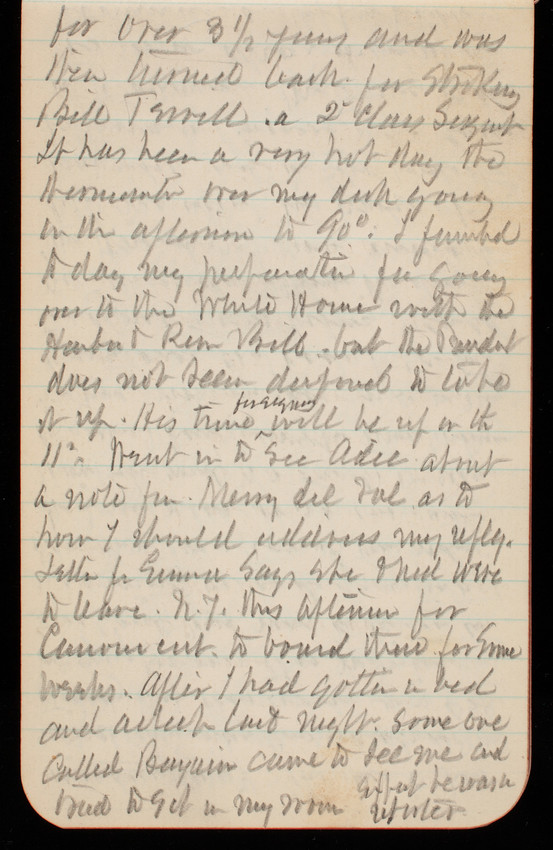 for over 3 1/2 years and was
then turned back for striking
Bill Terrell. a 2d Class Sergent
It has been a very hot day the
thermomater over my desk going
in the afternoon to 90°. I finished
to day my preparation for going
over to the White House with the
Bill. but the Presdent
does not seem disposed to take
it up. His time for signing will be up on the
11th. Went in to see Adee about
a note from Merry del Val as to
how I should address my reply.
Letter from Emma says she & Ned were
to leave N.Y. this afternoon for
to board there for some
weeks. After I had gotten in bed
and asleep last night. Some one
called came to see me and
tried to get in my room